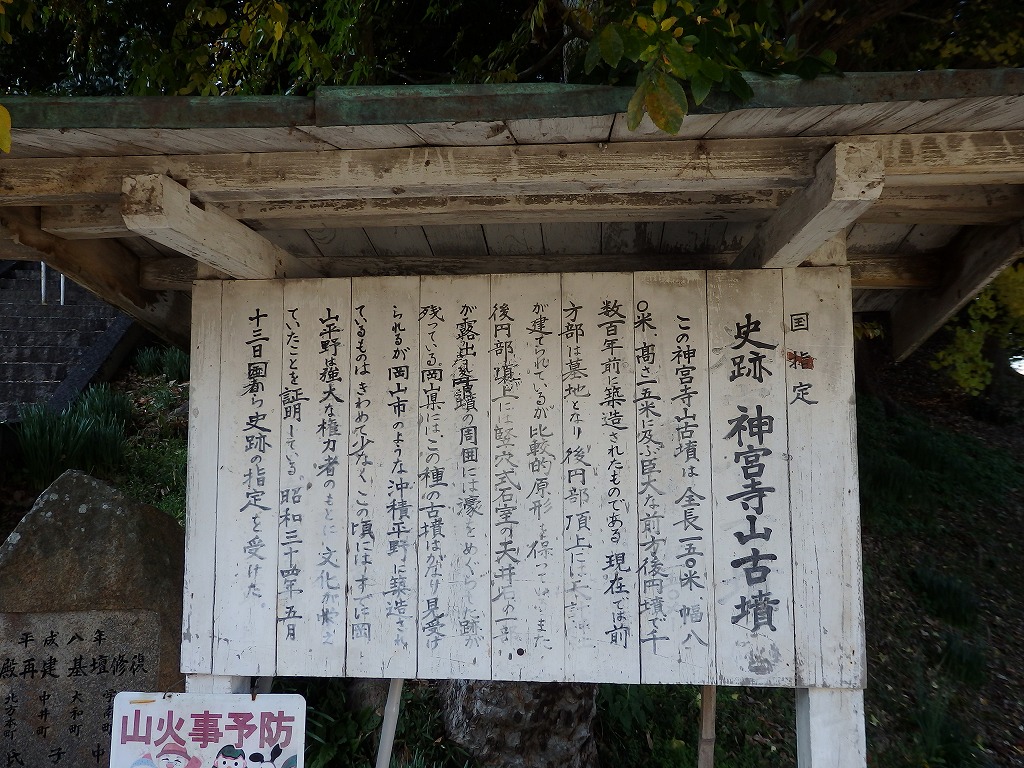 国指定
史跡 神宮寺山古墳
この神宮寺山古墳は 全長一五〇米 幅八
〇米 高さ一五米に及ぶ巨大な前方後円墳で千
数百年前に築造されたものである 現在では前
方部は墓地となり 後円部頂上には
が建てられているが比較的原形を保っている また
後円部墳上には竪穴式石室の天井石の一部
が露出 墳の周囲には濠をめぐらした跡が
残っている 岡山県にはこの種の古墳はかなり見受け
られるが 岡山市のような沖積平野に築造され
ているものはきわめて少なく この頃にはすでに岡
山平野に強大な権力者のもとに 文化が栄え
ていたことを証明している。昭和三十四年五月
十三日国から史跡の指定を受けた。
平成八年
殿再建 基壇修復
大和町
中井町
北方本町
氏子中
山火事予防